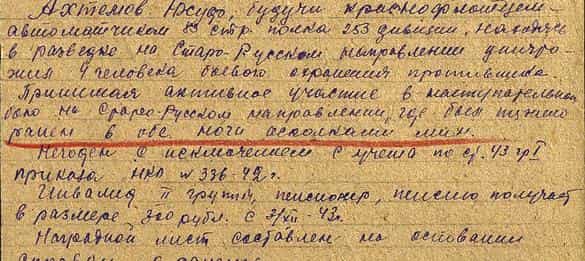 Ахтемов Юсуф, будучи краснофлотцем-
автоматчиком 59 стр. полка 253 дивизии, находясь
в разведке на Старо-Русском направлении уничто-
жил 4 человека боевого охранения противника.
Принимая активное участие в наступательном
бою на Старо-Русском направлении, где был тяжело
ранен в обе ноги осколками мин.
Негоден с исключением с учета по ст. 43 гр I
приказа НКО № 336-42 г.
Инвалид II группы, пенсионер, пенсию получает
в размере 300 рубл. с 2/XII-43 г.
Наградной лист составлен на основании
справки о ранении